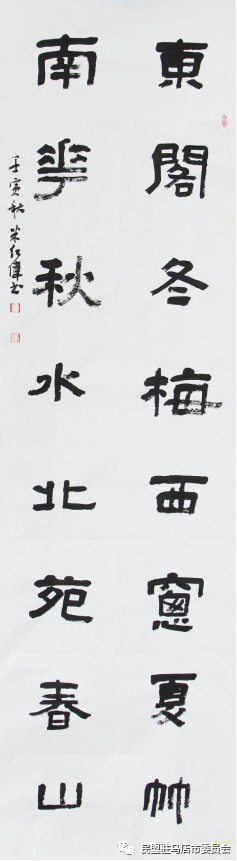 東閣冬梅西窻夏竹
南華秋水北苑春山
壬寅秋米红偉书
民盟驻马店市委员会